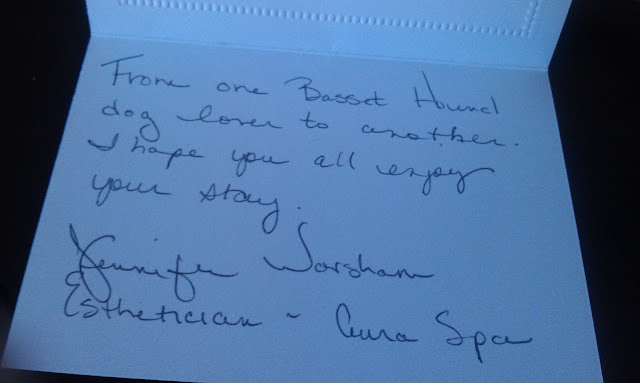 From one Basset Hound
dog lover to another.
I hope you all enjoy
your stay.
Jennifer Worsham
Esthetician ~ Aura Spa